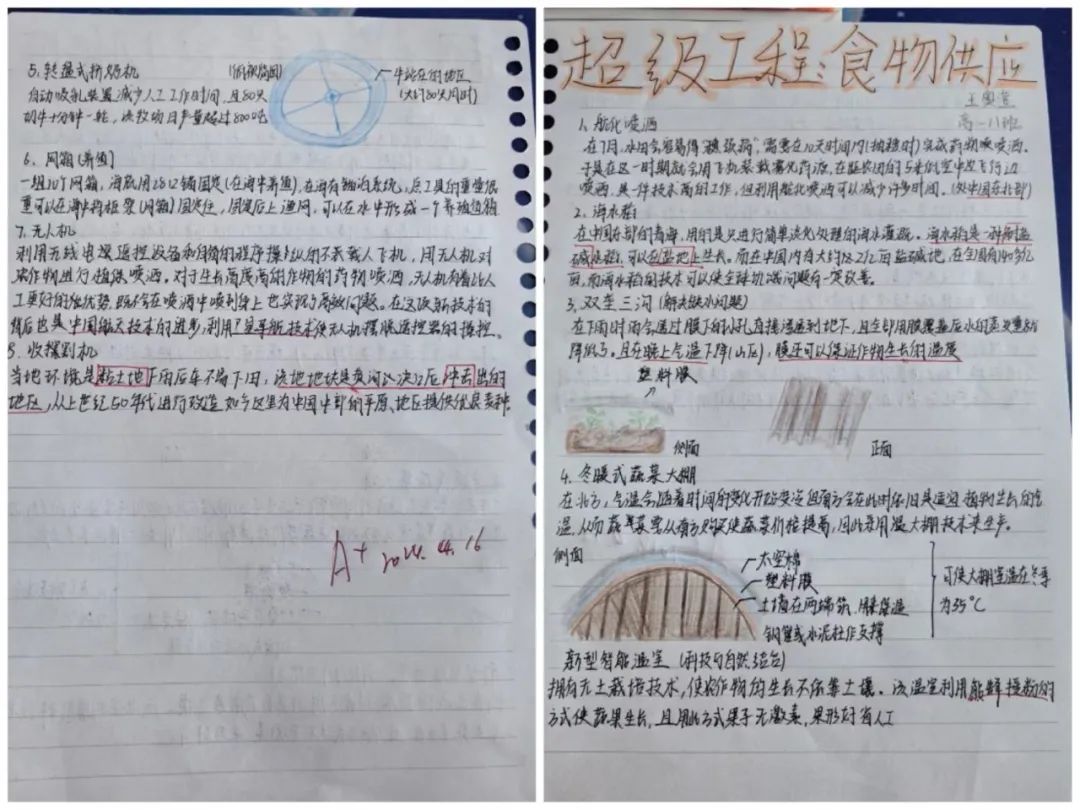 5. 转盘式挤奶机 (俯视简图)
牛站在的地区
(大约80头同时)
自动吸乳装置减少人工工作时间, 且80头
奶牛十分钟一轮, 该牧场日产量超过800吨
6. 网箱(养殖)
一组10个网箱, 海底用2812锚固定(在海中养殖), 在海有锚泊系统,
重可以在海中将框架(网箱)固定住, 固定后上渔网, 可以在水中形成一个养殖鱼箱
7. 无人机
利用无线电遥控设备和自备的程序操纵的不载人飞机, 用无人机对
农作物进行植保喷洒。对于生长高度高的作物的药物喷洒, 无人机有着比人
工更好的优势, 既不会在喷洒中喷到身上也实现了高效问题。在这项新技术的
背后也是中国航天技术的进步, 利用卫星导航技术使无人机摆脱遥控器的操控。
8. 收割机
当地环境是黏土地下雨后车不易下田, 该地地块是黄河决口后冲击出的
地区, 从上世纪50年代进行改造 如今这里为中国中部的平原地区提供优良麦种。
A+ 2024.04.16
超级工程:食物供应
高一11班
1. 航化喷洒
在7月, 水田会容易得"稻瘟病", 需要在10天时间内(抽穗时)完成药物喷洒。
于是在这一时期就会用飞机装载雾化药液, 在距农田的5米低空中边飞行边
喷洒, 是一件技术高的工作, 但利用航化喷洒可以减少许多时间。(处中国东北部)
2. 海水稻
在中国东部的青海, 用的是只进行简单淡化处理的海水灌溉。海水稻是一种耐盐
碱水稻, 可以在盐地上生长。而在中国内有大约15.2亿亩盐碱地, 在全国有140多亿
亩, 而海水稻的技术可以使全球饥饿问题有一定改善。
3. 双垄三沟 (解决缺水问题)
在下雨时雨会通过膜下的小孔直接渗透到地下, 且全部用膜覆盖后水的蒸发量就
降低了。且在晚上气温下降(山区), 膜还可以保证作物生长的温度
塑料膜
侧面
正面
4. 冬暖式蔬菜大棚
在北方, 气温会随着时间的变化开始变冷但南方会在此时依旧是适宜植物生长的气
温, 从而蔬菜需从南方购买使蔬菜价格提高, 因此采用温大棚技术来生产。
侧面
太空棉
塑料膜
土墙在两端筑, 用来保温
钢筋或水泥柱作支撑
可使大棚室温在冬季
为35°C
新型智能温室 (科技与自然结合)
拥有无土栽培技术, 使农作物的生长不依靠土壤。该温室利用熊蜂授粉的
方式使蔬果生长, 且用此方式果子无激素, 果形好省人工